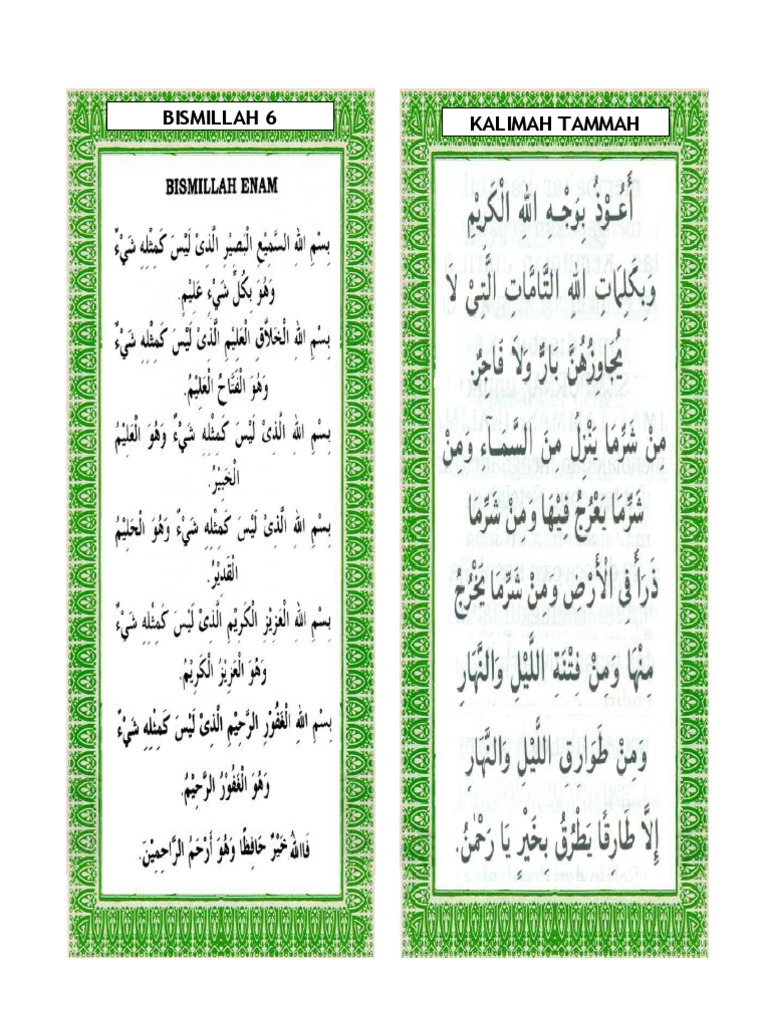 BISMILLAH 6
BISMILLAH ENAM
بِسْمِ اللهِ السَّمِيْعِ الْبَصِيْرِ الَّذِىْ لَيْسَ كَمِثْلِهِ شَيْءٌ
وَهُوَ بِكُلِّ شَيْءٍ عَلِيْمٌ.
بِسْمِ اللهِ الْخَلَّاقِ الْعَلِيْمِ الَّذِىْ لَيْسَ كَمِثْلِهِ شَيْءٌ
وَهُوَ الْفَتَّاحُ الْعَلِيْمُ.
بِسْمِ اللهِ الَّذِىْ لَيْسَ كَمِثْلِهِ شَيْءٌ وَهُوَ الْعَلِيْمُ
الْخَبِيْرُ.
بِسْمِ اللهِ الَّذِىْ لَيْسَ كَمِثْلِهِ شَيْءٌ وَهُوَ الْحَلِيْمُ
الْقَدِيْرُ.
بِسْمِ اللهِ الْعَزِيْزِ الْكَرِيْمِ الَّذِىْ لَيْسَ كَمِثْلِهِ شَيْءٌ
وَهُوَ الْعَزِيْزُ الْكَرِيْمُ.
بِسْمِ اللهِ الْغَفُوْرِ الرَّحِيْمِ الَّذِىْ لَيْسَ كَمِثْلِهِ شَيْءٌ
وَهُوَ الْغَفُوْرُ الرَّحِيْمُ.
فَاللهُ خَيْرٌ حَافِظًا وَهُوَ أَرْحَمُ الرَّاحِمِيْنَ.
KALIMAH TAMMAH
أَعُوْذُ بِوَجْهِ اللهِ الْكَرِيْمِ
وَبِكَلِمَاتِ اللهِ التَّامَّاتِ الَّتِىْ لَا
يُجَاوِزُهُنَّ بَارٌّ وَلَا فَاجِرٌ.
مِنْ شَرِّمَا يَنْزِلُ مِنَ السَّمَاءِ وَمِنْ
شَرِّمَا يَعْرُجُ فِيْهَا وَمِنْ شَرِّمَا
ذَرَأَ فِى الْأَرْضِ وَمِنْ شَرِّمَا يَخْرُجُ
مِنْهَا وَمِنْ فِتْنَةِ اللَّيْلِ وَالنَّهَارِ
وَمِنْ طَوَارِقِ اللَّيْلِ وَالنَّهَارِ
إِلَّا طَارِقًا يَطْرُقُ بِخَيْرٍ يَا رَحْمٰنُ.